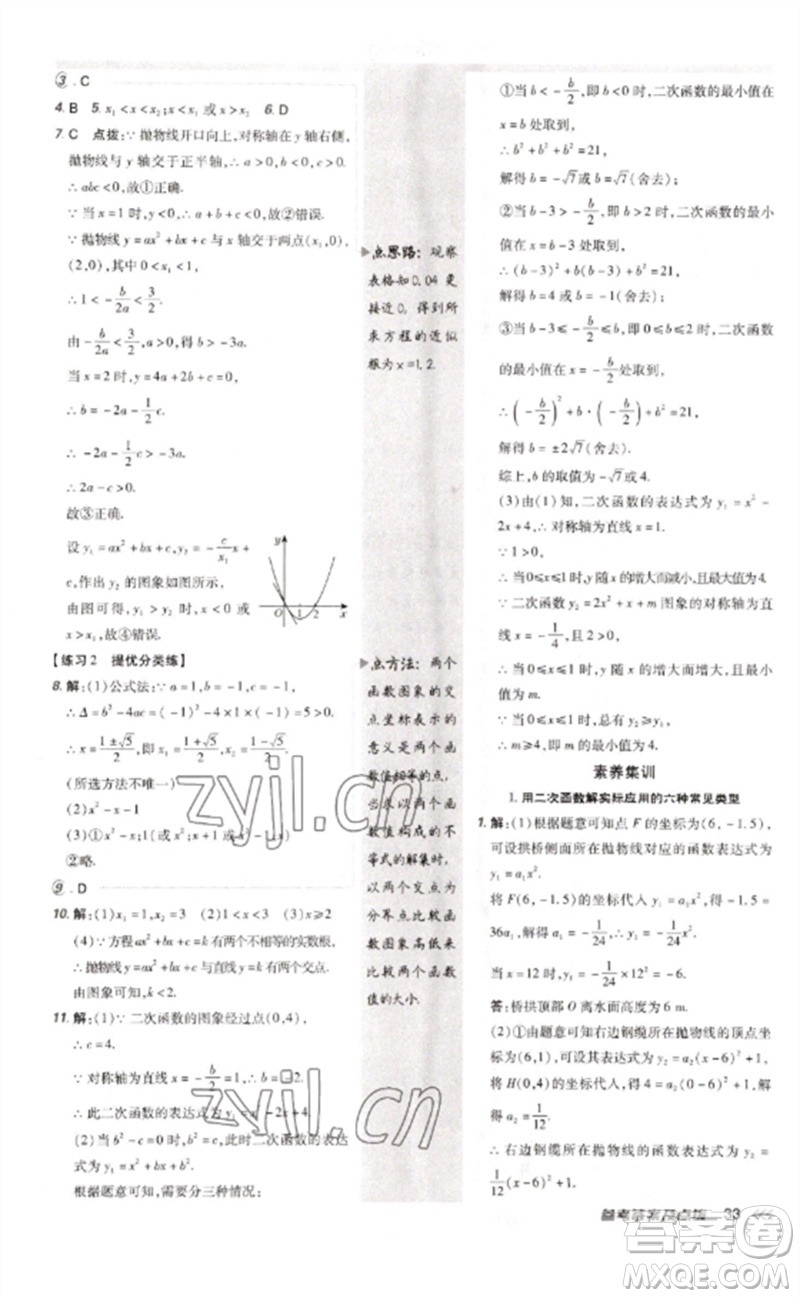 ③. C
4. B  5. x₁<x<x₂;x<x₁ 或 x>x₂  6. D
7. C  点拨:∵ 抛物线开口向上,对称轴在 y 轴右侧,
抛物线与 y 轴交于正半轴,∴ a>0,b<0,c>0.
∴ abc<0,故①正确.
∵ 当 x=1 时,y<0,∴ a+b+c<0,故②错误.
∵ 抛物线 y=ax²+bx+c 与 x 轴交于两点(x₁,0),
(2,0),其中 0<x₁<1,
∴ 1<-b/2a<3/2.
由-b/2a<3/2,得 b>-3a.
当 x=2 时,y=4a+2b+c=0,
∴ b=-2a-1/2c.
∴ -2a-1/2c>-3a.
∴ 2a-c>0.
故③正确.
设 y₁=ax²+bx+c,y₂=-c/x₁x+
c,作出 y₂ 的图象如图所示,
由图可得,y₁>y₂ 时,x<0 或
x>x₁,故④错误.
y
O 1 2 x
【练习2 提优分类练】
8. 解:(1)公式法:∵ a=1,b=-1,c=-1,
∴ Δ=b²-4ac=(-1)²-4×1×(-1)=5>0.
∴ x=(1±√5)/2,即 x₁=(1+√5)/2,x₂=(1-√5)/2.
(所选方法不唯一)
(2)x²-x-1
(3)①x(x-1)=1(或 x+1=x²或 x²-x-1=0)
②略.
⑨. D
10. 解:(1)x₁=1,x₂=3  (2)1<x<3  (3)x≥2
(4)∵ 方程 ax²+bx+c=k 有两个不相等的实数根,
∴ 抛物线 y=ax²+bx+c 与直线 y=k 有两个交点.
由图象可知,k<2.
11. 解:(1)∵ 二次函数的图象经过点(0,4),
∴ c=4.
∵ 对称轴为直线 x=-b/2=1,∴ b=-2.
∴ 此二次函数的表达式为 y₁=x²-2x+4.
(2)当 b²-c=0 时,b²=c,此时二次函数的表达
式为 y₁=x²+bx+b².
根据题意可知,需要分三种情况:
点思路:观察
表格知0.04更
接近0,得到所
求方程的近似
根为x=1.2.
点方法:两个
函数图象的交
点坐标表示的
意义是两个函
数值相等或是
函数值构成的不
等式的解集时,
以两个交点为
分界点比较函
数图象高低来
比较两个函数
值的大小.
①当 b<-b/2,即 b<0 时,二次函数的最小值在
x=b 处取到,
∴ b²+b²+b²=21,
解得 b=-√7或 b=√7(舍去);
②当 b-3>-b/2,即 b>2 时,二次函数的最小
值在 x=b-3 处取到,
∴ (b-3)²+b(b-3)+b²=21,
解得 b=4 或 b=-1(舍去);
③当 b-3≤-b/2≤b,即 0≤b≤2 时,二次函数
的最小值在 x=-b/2处取到,
∴ (-b/2)²+b·(-b/2)+b²=21,
解得 b=±2√7(舍去).
综上,b 的取值为-√7或 4.
(3)由(1)知,二次函数的表达式为 y₁=x²-
2x+4,∴ 对称轴为直线 x=1.
∵ 1>0,
∴ 当 0≤x≤1 时,y₁ 随 x 的增大而减小,且最大值为 4.
∵ 二次函数 y₂=2x²+x+m 图象的对称轴为直
线 x=-1/4,且 2>0,
∴ 当 0≤x≤1 时,y₂ 随 x 的增大而增大,且最
小值为 m.
∵ 当 0≤x≤1 时,总有 y₂≥y₁,
∴ m≥4,即 m 的最小值为 4.
素养集训
1. 用二次函数解实际应用的六种常见类型
1. 解:(1)根据题意可知点 F 的坐标为(6,-1.5),
可设拱桥侧面所在抛物线对应的函数表达式为
y₁=a₁x².
将 F(6,-1.5)的坐标代入,得-1.5=
36a₁,解得 a₁=-1/24,∴ y₁=-1/24x².
当 x=12 时,y₁=-1/24×12²=-6.
答:桥拱顶部 O 离水面高度为 6 m.
(2)①由题意可知右边钢缆所在抛物线的顶点坐
标为(6,1),可设其表达式为 y₂=a₂(x-6)²+1,
将 H(0,4)的坐标代入,得 4=a₂(0-6)²+1,
解得 a₂=1/12.
∴ 右边钢缆所在抛物线的函数表达式为 y₂=
1/12(x-6)²+1.
参考答案及点拨 33
zyjl.cn
zyjl.cn
作业精灵
MXQE.COM